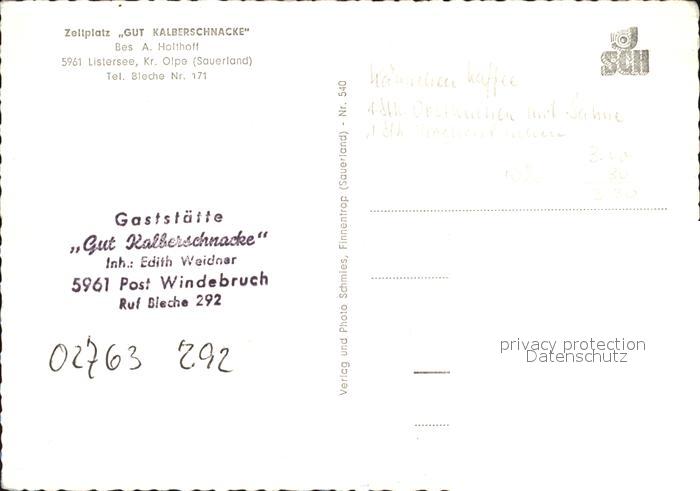 Zeltplatz „GUT KALBERSCHNACKE"
Bes A. Holthoff
5961 Listersee, Kr. Olpe (Sauerland)
Tel. Bleche Nr. 171
Gaststätte
„Gut Kalberschnacke"
Inh.: Edith Weidner
5961 Post Windebruch
Ruf Bleche 292
02763 292
Verlag und Photo Schmies, Finnentrop (Sauerland) - Nr. 540
SCH
Kännchen Kaffee
mit Sahne
privacy protection
Datenschutz